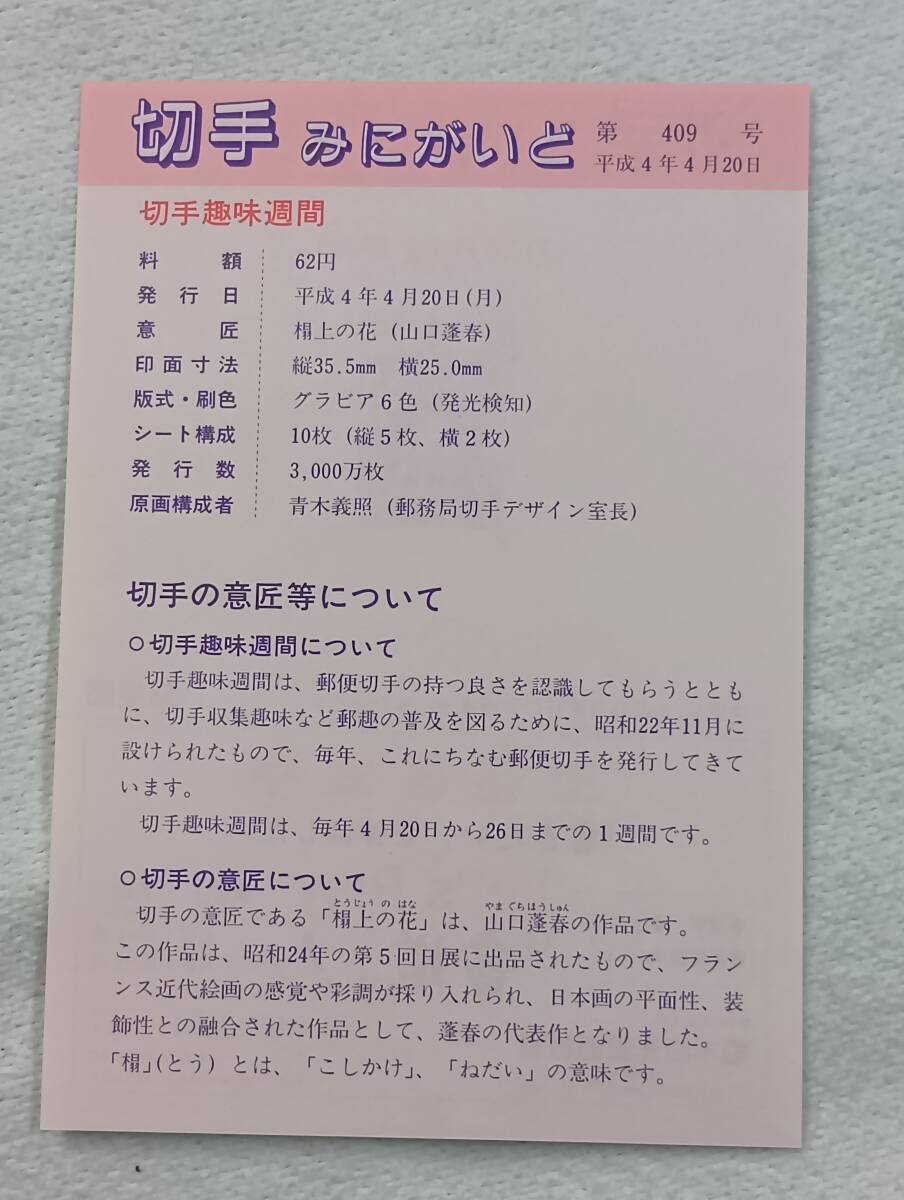 切手 みにがいど 第 409 号
平成4年4月20日
切手趣味週間
料額 62円
発行日 平成4年4月20日(月)
意匠 榻上の花 (山口蓬春)
印面寸法 縦35.5mm 横25.0mm
版式・刷色 グラビア6色 (発光検知)
シート構成 10枚 (縦5枚、横2枚)
発行数 3,000万枚
原画構成者 青木義照 (郵務局切手デザイン室長)
切手の意匠等について
○切手趣味週間について
切手趣味週間は、郵便切手の持つ良さを認識してもらうととも
に、切手収集趣味など郵趣の普及を図るために、昭和22年11月に
設けられたもので、毎年、これにちなむ郵便切手を発行してきて
います。
切手趣味週間は、毎年4月20日から26日までの1週間です。
○切手の意匠について
とうじょう の はな やま ぐちほうしゅん
切手の意匠である「榻上の花」は、山口蓬春の作品です。
この作品は、昭和24年の第5回日展に出品されたもので、フラン
ンス近代絵画の感覚や彩調が採り入れられ、日本画の平面性、装
飾性との融合された作品として、蓬春の代表作となりました。
「榻」(とう) とは、「こしかけ」、「ねだい」の意味です。